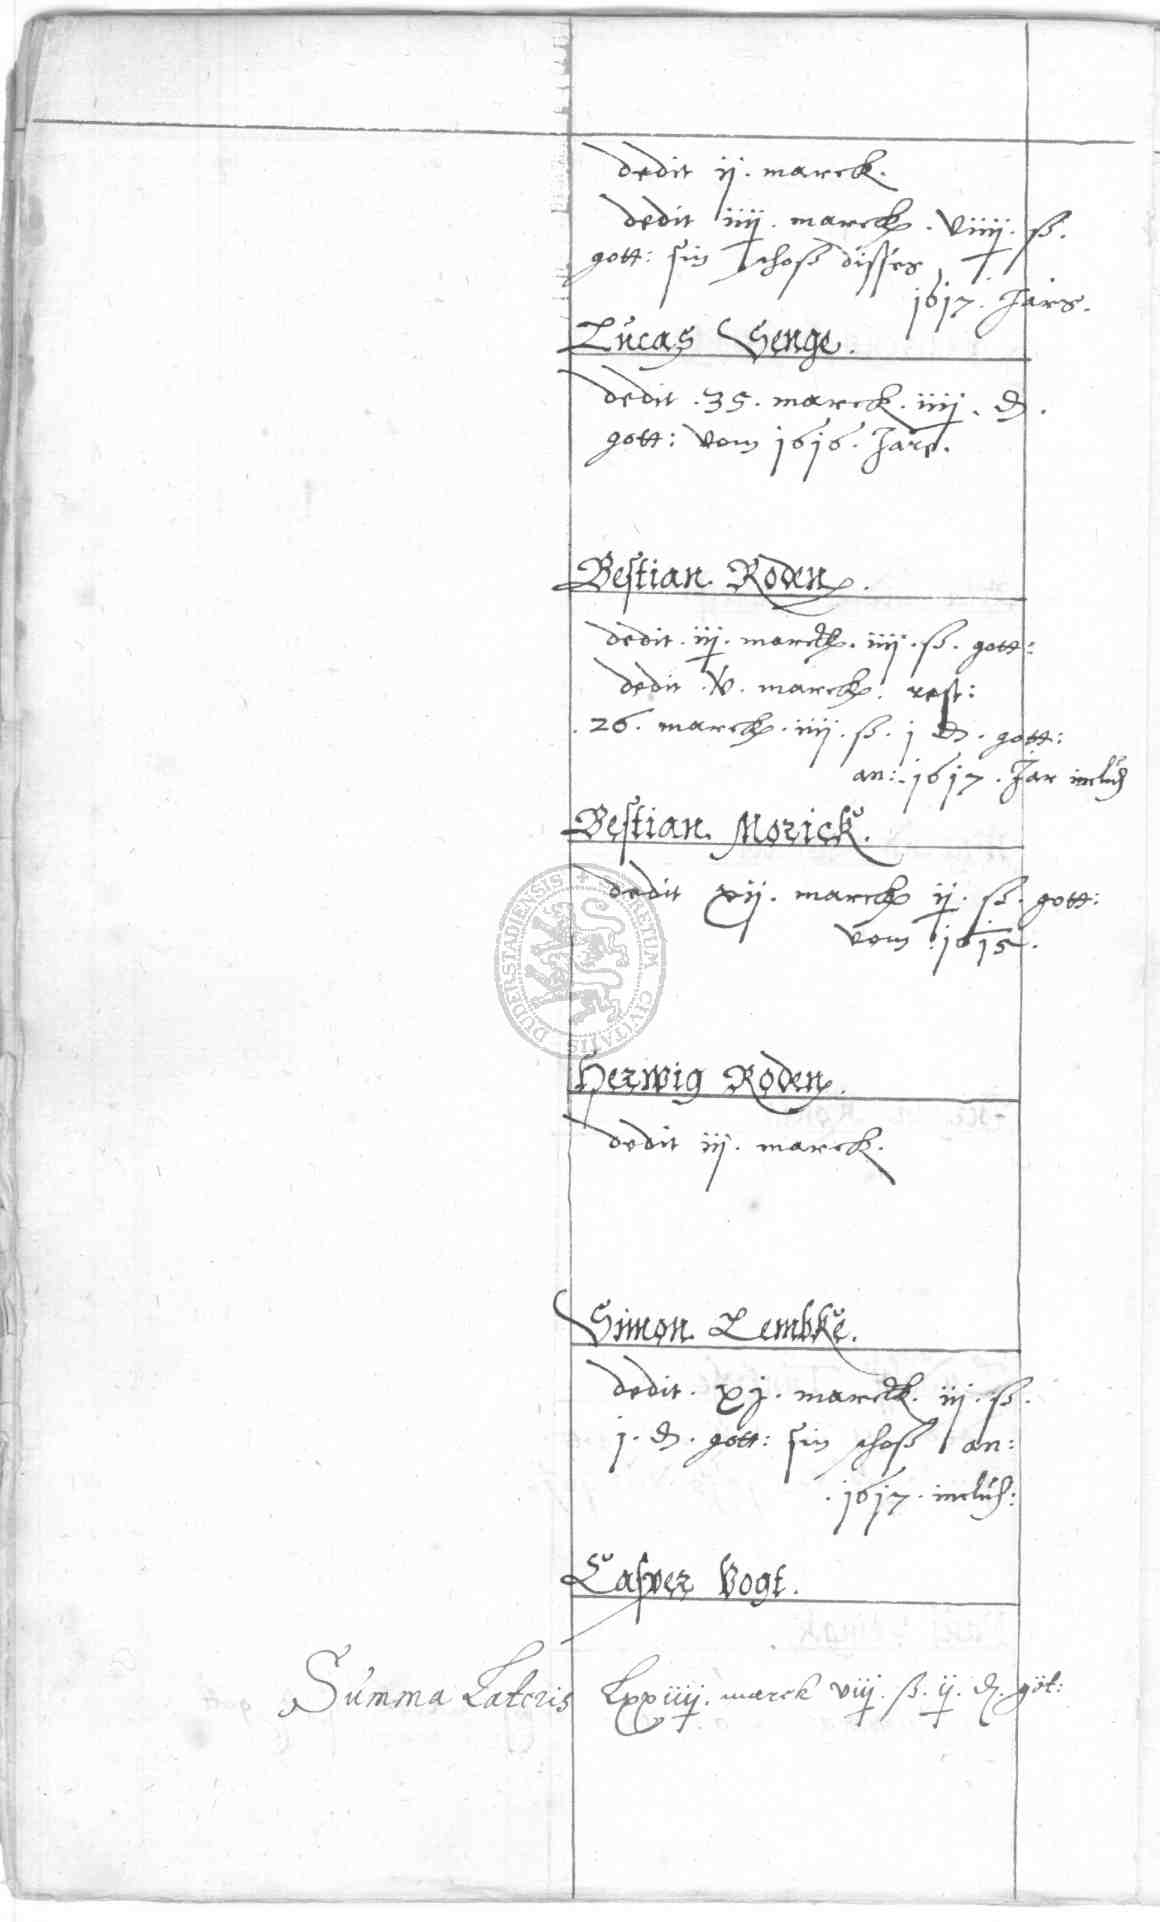 dedit ij. marck.
dedit iiij. marck. viiij. ß.
gott: sin schoß disses
1617. Jars.
Lucas Senge.
dedit .35. marck. iiij. d.
gott: vom 1616. Jare.
Bestian. Roden.
dedit. iij. marck. iiij. ß. gott:
dedit .v. marck. rest:
.26. marck. iiij. ß. j d. gott:
an: 1617. Jar inclus
Bestian. Morick.
dedit xij. marck ij. ß. gott:
vom .1615.
Herwig Roden.
dedit iij. marck.
Simon. Lembke.
dedit. xj. marck. iij. ß.
j. d. gott: sin schoß an:
.1617. inclus:
Casper Vogt.
Summa Lateris Lxxiiij. marck viij. ß. ij. d. got:
SECRETUM CIVITATIS DUDERSTADIENSIS